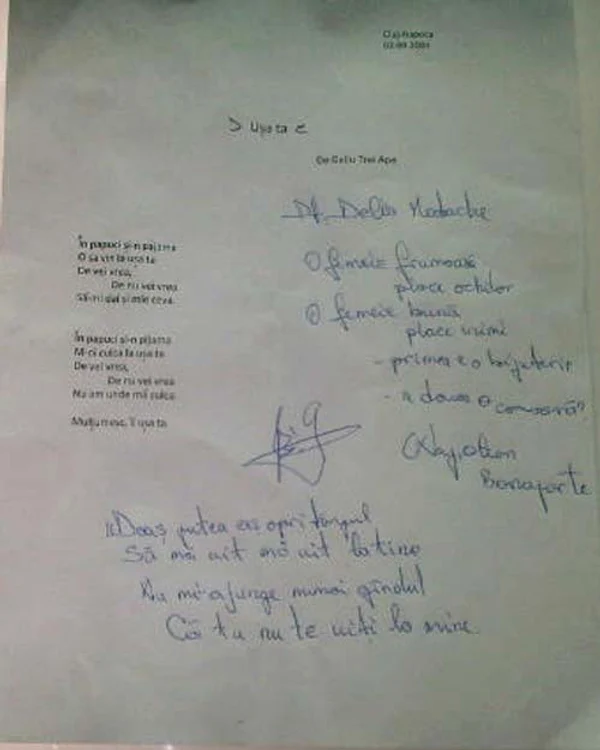 Cluj-Napoca
02.09.2004
> Ușa ta <
De Geliu Trei Ape
În papuci și-n pijama
O să vin la ușa ta
De vei vrea,
De nu vei vrea
Să-mi dai și mie ceva.
În papuci și-n pijama
M-oi culca la ușa ta
De vei vrea,
De nu vei vrea
Nu am unde mă culca.
Mulțumesc, îi ușa ta
Pt. Delia Matache
O femeie frumoasă
place ochilor
O femeie bună
place inimi
- prima e o bijuterie
- a doua o comoară"
(Napoleon
Bonaparte
"De aș putea eu opri timpul
Să mă uit mă uit la tine
Nu mi-ajunge numai gîndul
Că tu nu te uiți la mine